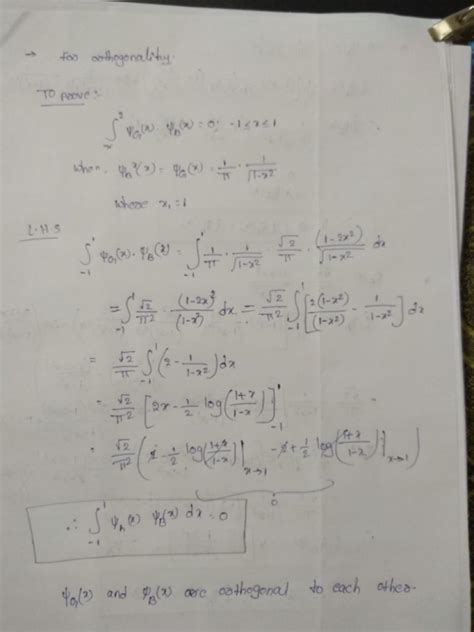 → For orthogonality.
To prove:-
∫ ψ_G(x) · ψ_B(x) = 0; -1 ≤ x ≤ 1
when, ψ_B²(x) = ψ_G(x) · 1/π · 1/√(1-x²)
where x₁ = 1
L.H.S
∫_{-1}^{1} ψ_G(x) · ψ_B(x) = ∫_{-1}^{1} 1/π · 1/√(1-x²) √2/π · (1-2x²)/√(1-x²) dx
= ∫_{-1}^{1} √2/π² · (1-2x)²/(1-x²) dx = √2/π² ∫_{-1}^{1} [2(1-x²)/(1-x²) - 1/(1-x²)] dx
= √2/π ∫_{-1}^{1} (2 - 1/(1-x²)) dx
= √2/π² [2x - 1/2 log((1+x)/(1-x))]_{-1}^{1}
= √2/π² (2 - 1/2 log((1+x)/(1-x))|_{x→1} - 2 + 1/2 log((1+x)/(1-x))|_{x→1})
0
∴ ∫_{-1}^{1} ψ_A(x) ψ_B(x) dx = 0
ψ_G(x) and ψ_B(x) are orthogonal to each other.